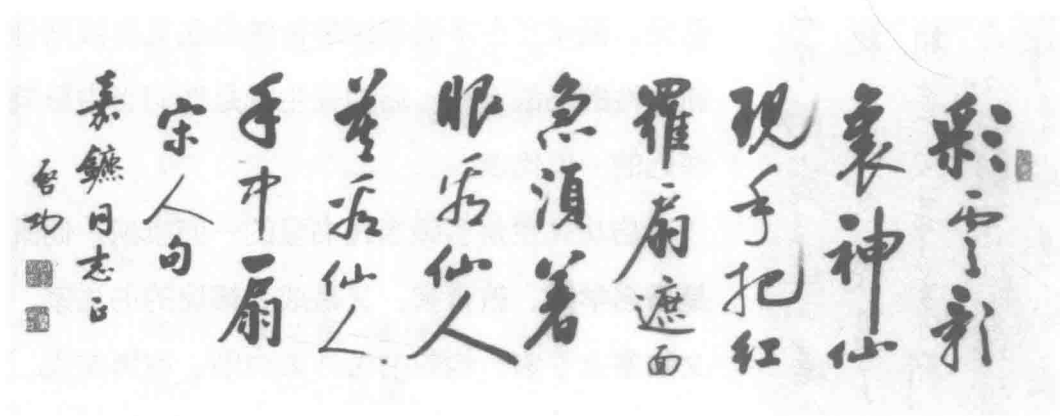 彩雲影
裏神仙
現手把紅
羅扇遮面
急須着
眼看仙人
莫看仙人
手中扇
宋人句
嘉鑣同志正
啓功